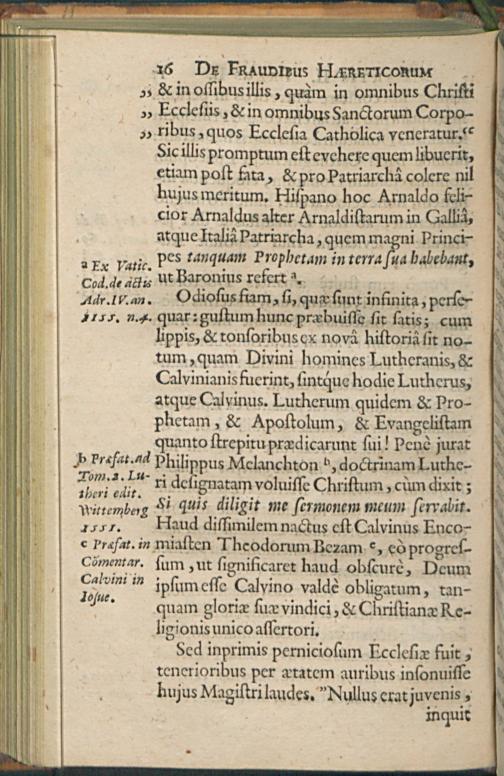 16 DE FRAUDIBUS HÆRETICORUM
„ & in oſſibus illis, quàm in omnibus Chriſti
„ Eccleſiis, & in omnibus Sanctorum Corpo-
„ ribus, quos Eccleſia Catholica veneratur.“
Sic illis promptum eſt evehere quem libuerit,
etiam poſt fata, & pro Patriarchâ colere nil
hujus meritum. Hiſpano hoc Arnaldo feli-
cior Arnaldus alter Arnaldiſtarum in Galliâ,
atque Italiâ Patriarcha, quem magni Princi-
pes tanquam Prophetam in terra ſua habebant,
ut Baronius refert a.
Odioſus fiam, ſi, quæ ſunt infinita, perſe-
quar: guſtum hunc præbuiſſe ſit ſatis; cum
lippis, & tonſoribus ex novâ hiſtoriâ ſit no-
tum, quam Divini homines Lutheranis, &
Calvinianis fuerint, ſintque hodie Lutherus,
atque Calvinus. Lutherum quidem & Pro-
phetam, & Apoſtolum, & Evangeliſtam
quanto ſtrepitu prædicarunt ſui! Penè jurat
Philippus Melanchton b, doctrinam Luthe-
ri deſignatam voluiſſe Chriſtum, cùm dixit;
Si quis diligit me ſermonem meum ſervabit.
Haud diſſimilem nactus eſt Calvinus Enco-
miaſten Theodorum Bezam c, eò progreſ-
ſum, ut ſignificaret haud obſcurè, Deum
ipſum eſſe Calvino valdè obligatum, tan-
quam gloriæ ſuæ vindici, & Chriſtianæ Re-
ligionis unico aſſertori.
Sed inprimis pernicioſum Eccleſiæ fuit,
tenerioribus per ætatem auribus inſonuiſſe
hujus Magiſtri laudes. "Nullus erat juvenis,
inquit
a Ex Vatic.
Cod. de actis
Adr. IV. an.
1155. n. 4.
b Præfat. ad
Tom. 2. Lu-
theri edit.
Wittemberg
1551.
c Præfat. in
Cõmentar.
Calvini in
Ioſue.